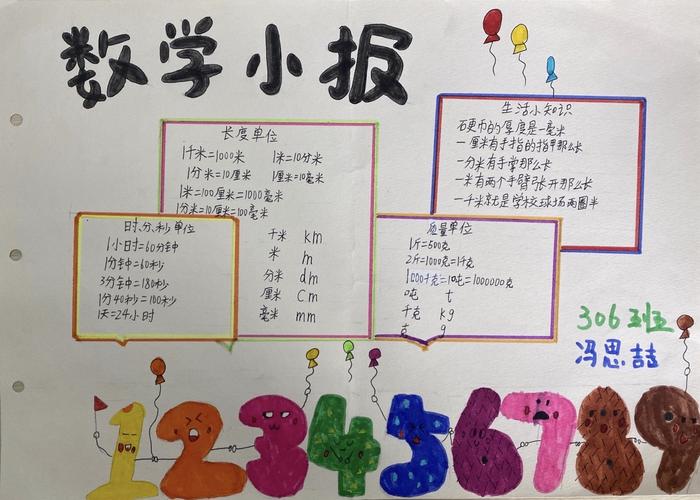 数学小报
长度单位
1千米=1000米 1米=10分米
1分米=10厘米 1厘米=10毫米
1米=100厘米=1000毫米
1分米=10厘米=100毫米
千米 km
米 m
分米 dm
厘米 cm
毫米 mm
时、分、秒单位
1小时=60分钟
1分钟=60秒
3分钟=180秒
1分40秒=100秒
1天=24小时
质量单位
1斤=500克
2斤=1000克=1千克
=10吨=1000000克
吨 t
千克 kg
克 g
生活小知识
硬币的厚度是一毫米
一厘米有手指的指甲那么长
一分米有手掌那么长
一米有两个手臂张开那么长
一千米就是学校球场两圈半
306班
冯思喆
1 2 3 4 5 6 7 8 9